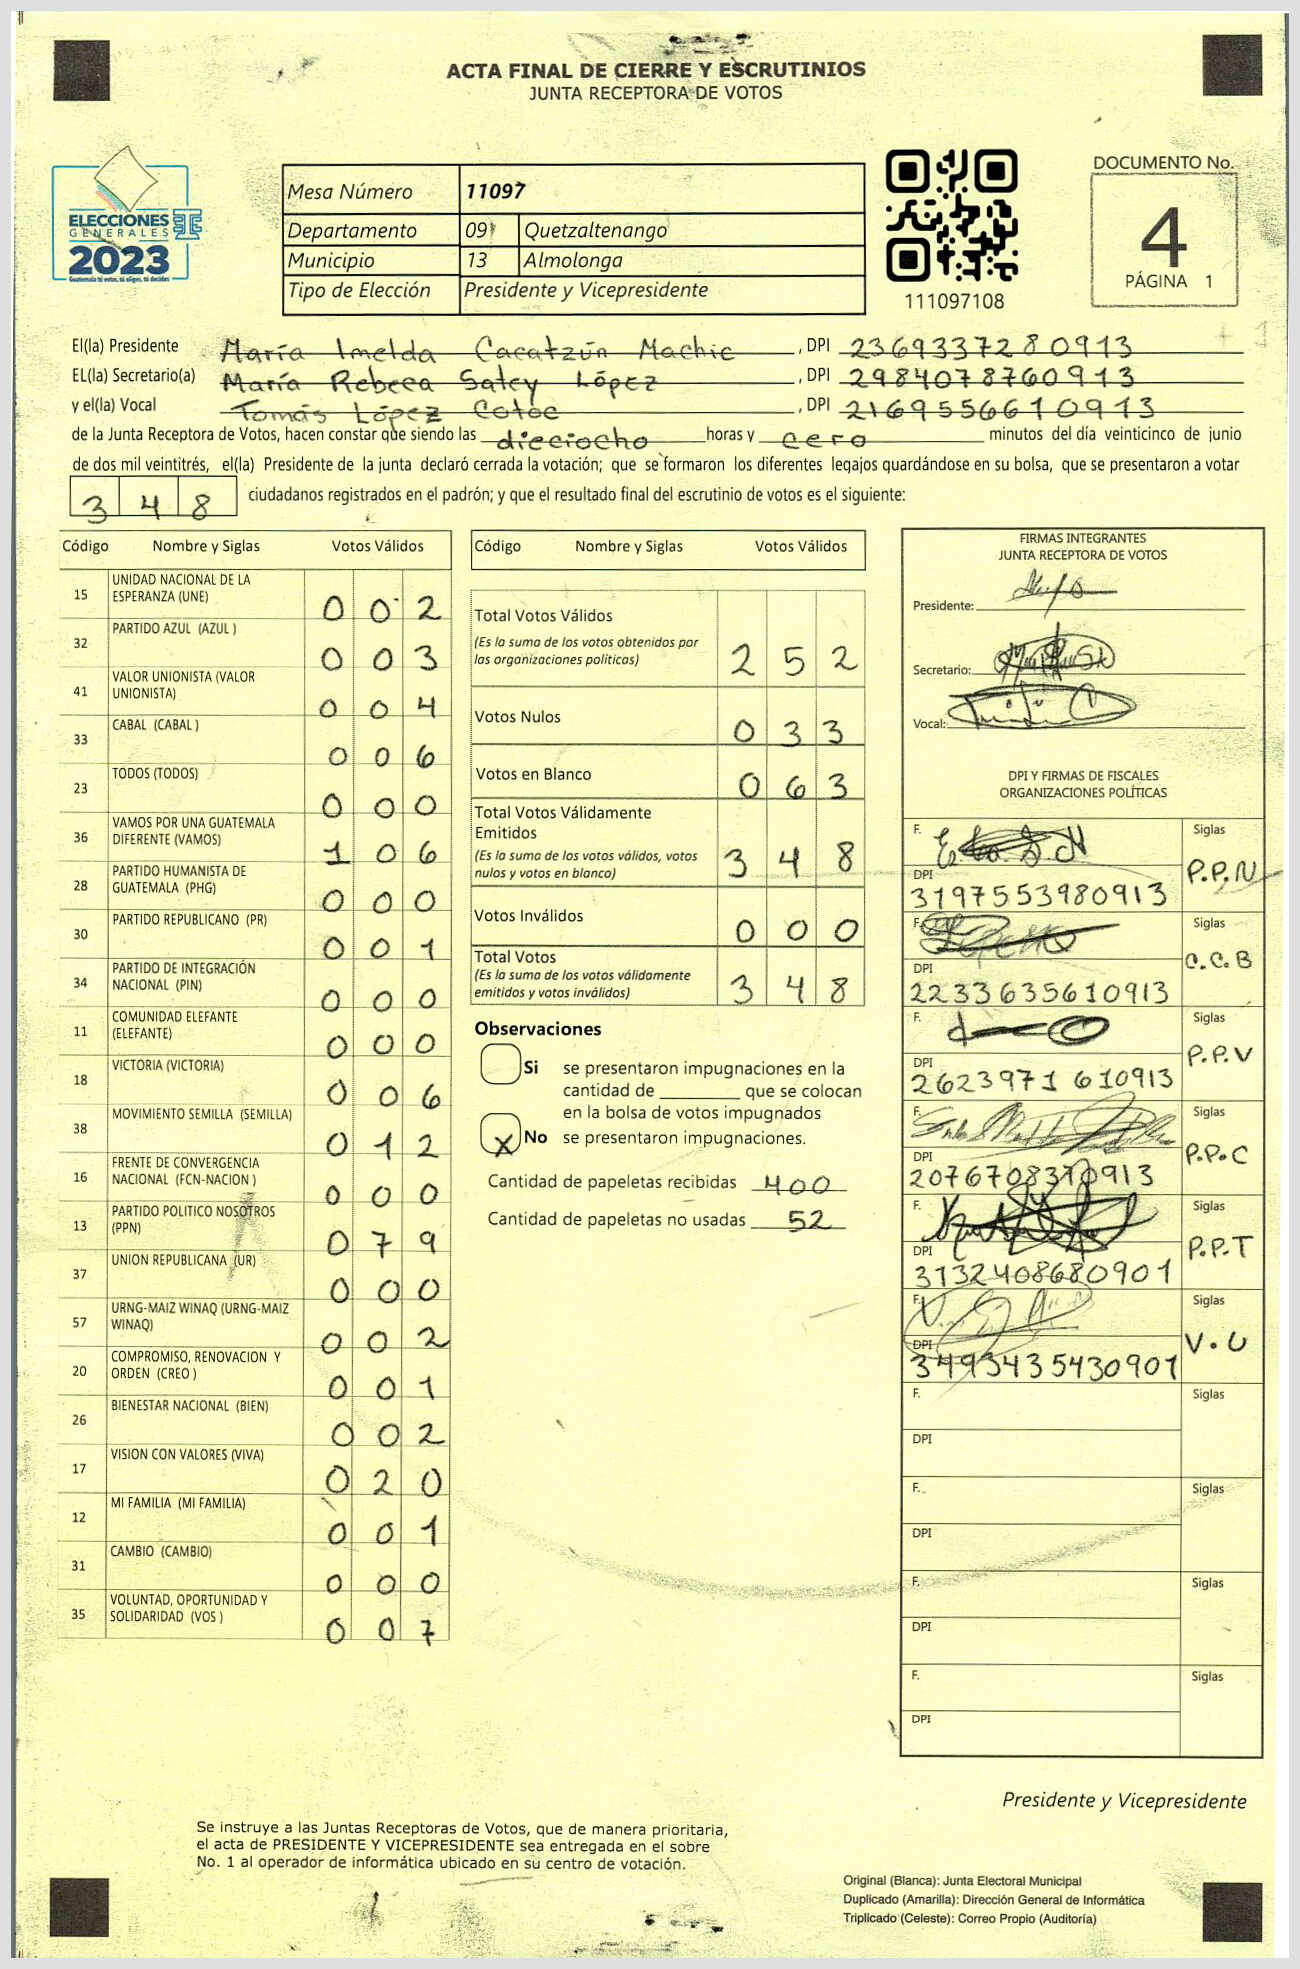 ACTA FINAL DE CIERRE Y ESCRUTINIOS
JUNTA RECEPTORA DE VOTOS
ELECCIONES
GENERALES
2023
Guatemala tú votas, tú eliges, tú decides
Mesa Número 11097
Departamento 09 Quetzaltenango
Municipio 13 Almolonga
Tipo de Elección Presidente y Vicepresidente
111097108
DOCUMENTO No.
4
PÁGINA 1
El(la) Presidente María Imelda Cacatzún Machic , DPI 2369337280913
EL(la) Secretario(a) María Rebeca Satey López , DPI 2984078760913
y el(la) Vocal Tomás López Cotoc , DPI 2169556610913
de la Junta Receptora de Votos, hacen constar que siendo las dieciocho horas y cero minutos del día veinticinco de junio
de dos mil veintitrés, el(la) Presidente de la junta declaró cerrada la votación; que se formaron los diferentes legajos guardándose en su bolsa, que se presentaron a votar
348 ciudadanos registrados en el padrón; y que el resultado final del escrutinio de votos es el siguiente:
Código Nombre y Siglas Votos Válidos
15 UNIDAD NACIONAL DE LA ESPERANZA (UNE) 002
32 PARTIDO AZUL (AZUL ) 003
41 VALOR UNIONISTA (VALOR UNIONISTA) 004
33 CABAL (CABAL ) 006
23 TODOS (TODOS) 000
36 VAMOS POR UNA GUATEMALA DIFERENTE (VAMOS) 106
28 PARTIDO HUMANISTA DE GUATEMALA (PHG) 000
30 PARTIDO REPUBLICANO (PR) 001
34 PARTIDO DE INTEGRACIÓN NACIONAL (PIN) 000
11 COMUNIDAD ELEFANTE (ELEFANTE) 000
18 VICTORIA (VICTORIA) 006
38 MOVIMIENTO SEMILLA (SEMILLA) 012
16 FRENTE DE CONVERGENCIA NACIONAL (FCN-NACION ) 000
13 PARTIDO POLITICO NOSOTROS (PPN) 079
37 UNION REPUBLICANA (UR) 000
57 URNG-MAIZ WINAQ (URNG-MAIZ WINAQ) 002
20 COMPROMISO, RENOVACION Y ORDEN (CREO ) 001
26 BIENESTAR NACIONAL (BIEN) 002
17 VISION CON VALORES (VIVA) 020
12 MI FAMILIA (MI FAMILIA) 001
31 CAMBIO (CAMBIO) 000
35 VOLUNTAD, OPORTUNIDAD Y SOLIDARIDAD (VOS ) 007
Código Nombre y Siglas Votos Válidos
Total Votos Válidos 252
(Es la suma de los votos obtenidos por
las organizaciones políticas)
Votos Nulos 033
Votos en Blanco 063
Total Votos Válidamente
Emitidos 348
(Es la suma de los votos válidos, votos
nulos y votos en blanco)
Votos Inválidos 000
Total Votos 348
(Es la suma de los votos válidamente
emitidos y votos inválidos)
Observaciones
Si se presentaron impugnaciones en la
cantidad de ________ que se colocan
en la bolsa de votos impugnados
X No se presentaron impugnaciones.
Cantidad de papeletas recibidas 400
Cantidad de papeletas no usadas 52
FIRMAS INTEGRANTES
JUNTA RECEPTORA DE VOTOS
Presidente:
Secretario:
Vocal:
DPI Y FIRMAS DE FISCALES
ORGANIZACIONES POLÍTICAS
F. Siglas
P.P.N
DPI
3197553980913
F. Siglas
C.C.B
DPI
2233635610913
F. Siglas
P.P.V
DPI
2623971610913
F. Siglas
P.P.C
DPI
F. Siglas
P.P.T
DPI
3132408680901
F. Siglas
V.U
DPI
3493435430901
F. Siglas
DPI
F. Siglas
DPI
F. Siglas
DPI
F. Siglas
DPI
Presidente y Vicepresidente
Se instruye a las Juntas Receptoras de Votos, que de manera prioritaria,
el acta de PRESIDENTE Y VICEPRESIDENTE sea entregada en el sobre
No. 1 al operador de informática ubicado en su centro de votación.
Original (Blanca): Junta Electoral Municipal
Duplicado (Amarilla): Dirección General de Informática
Triplicado (Celeste): Correo Propio (Auditoría)